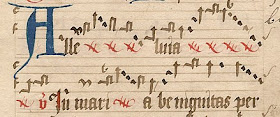 Alle luia
V In mari a benignitas per